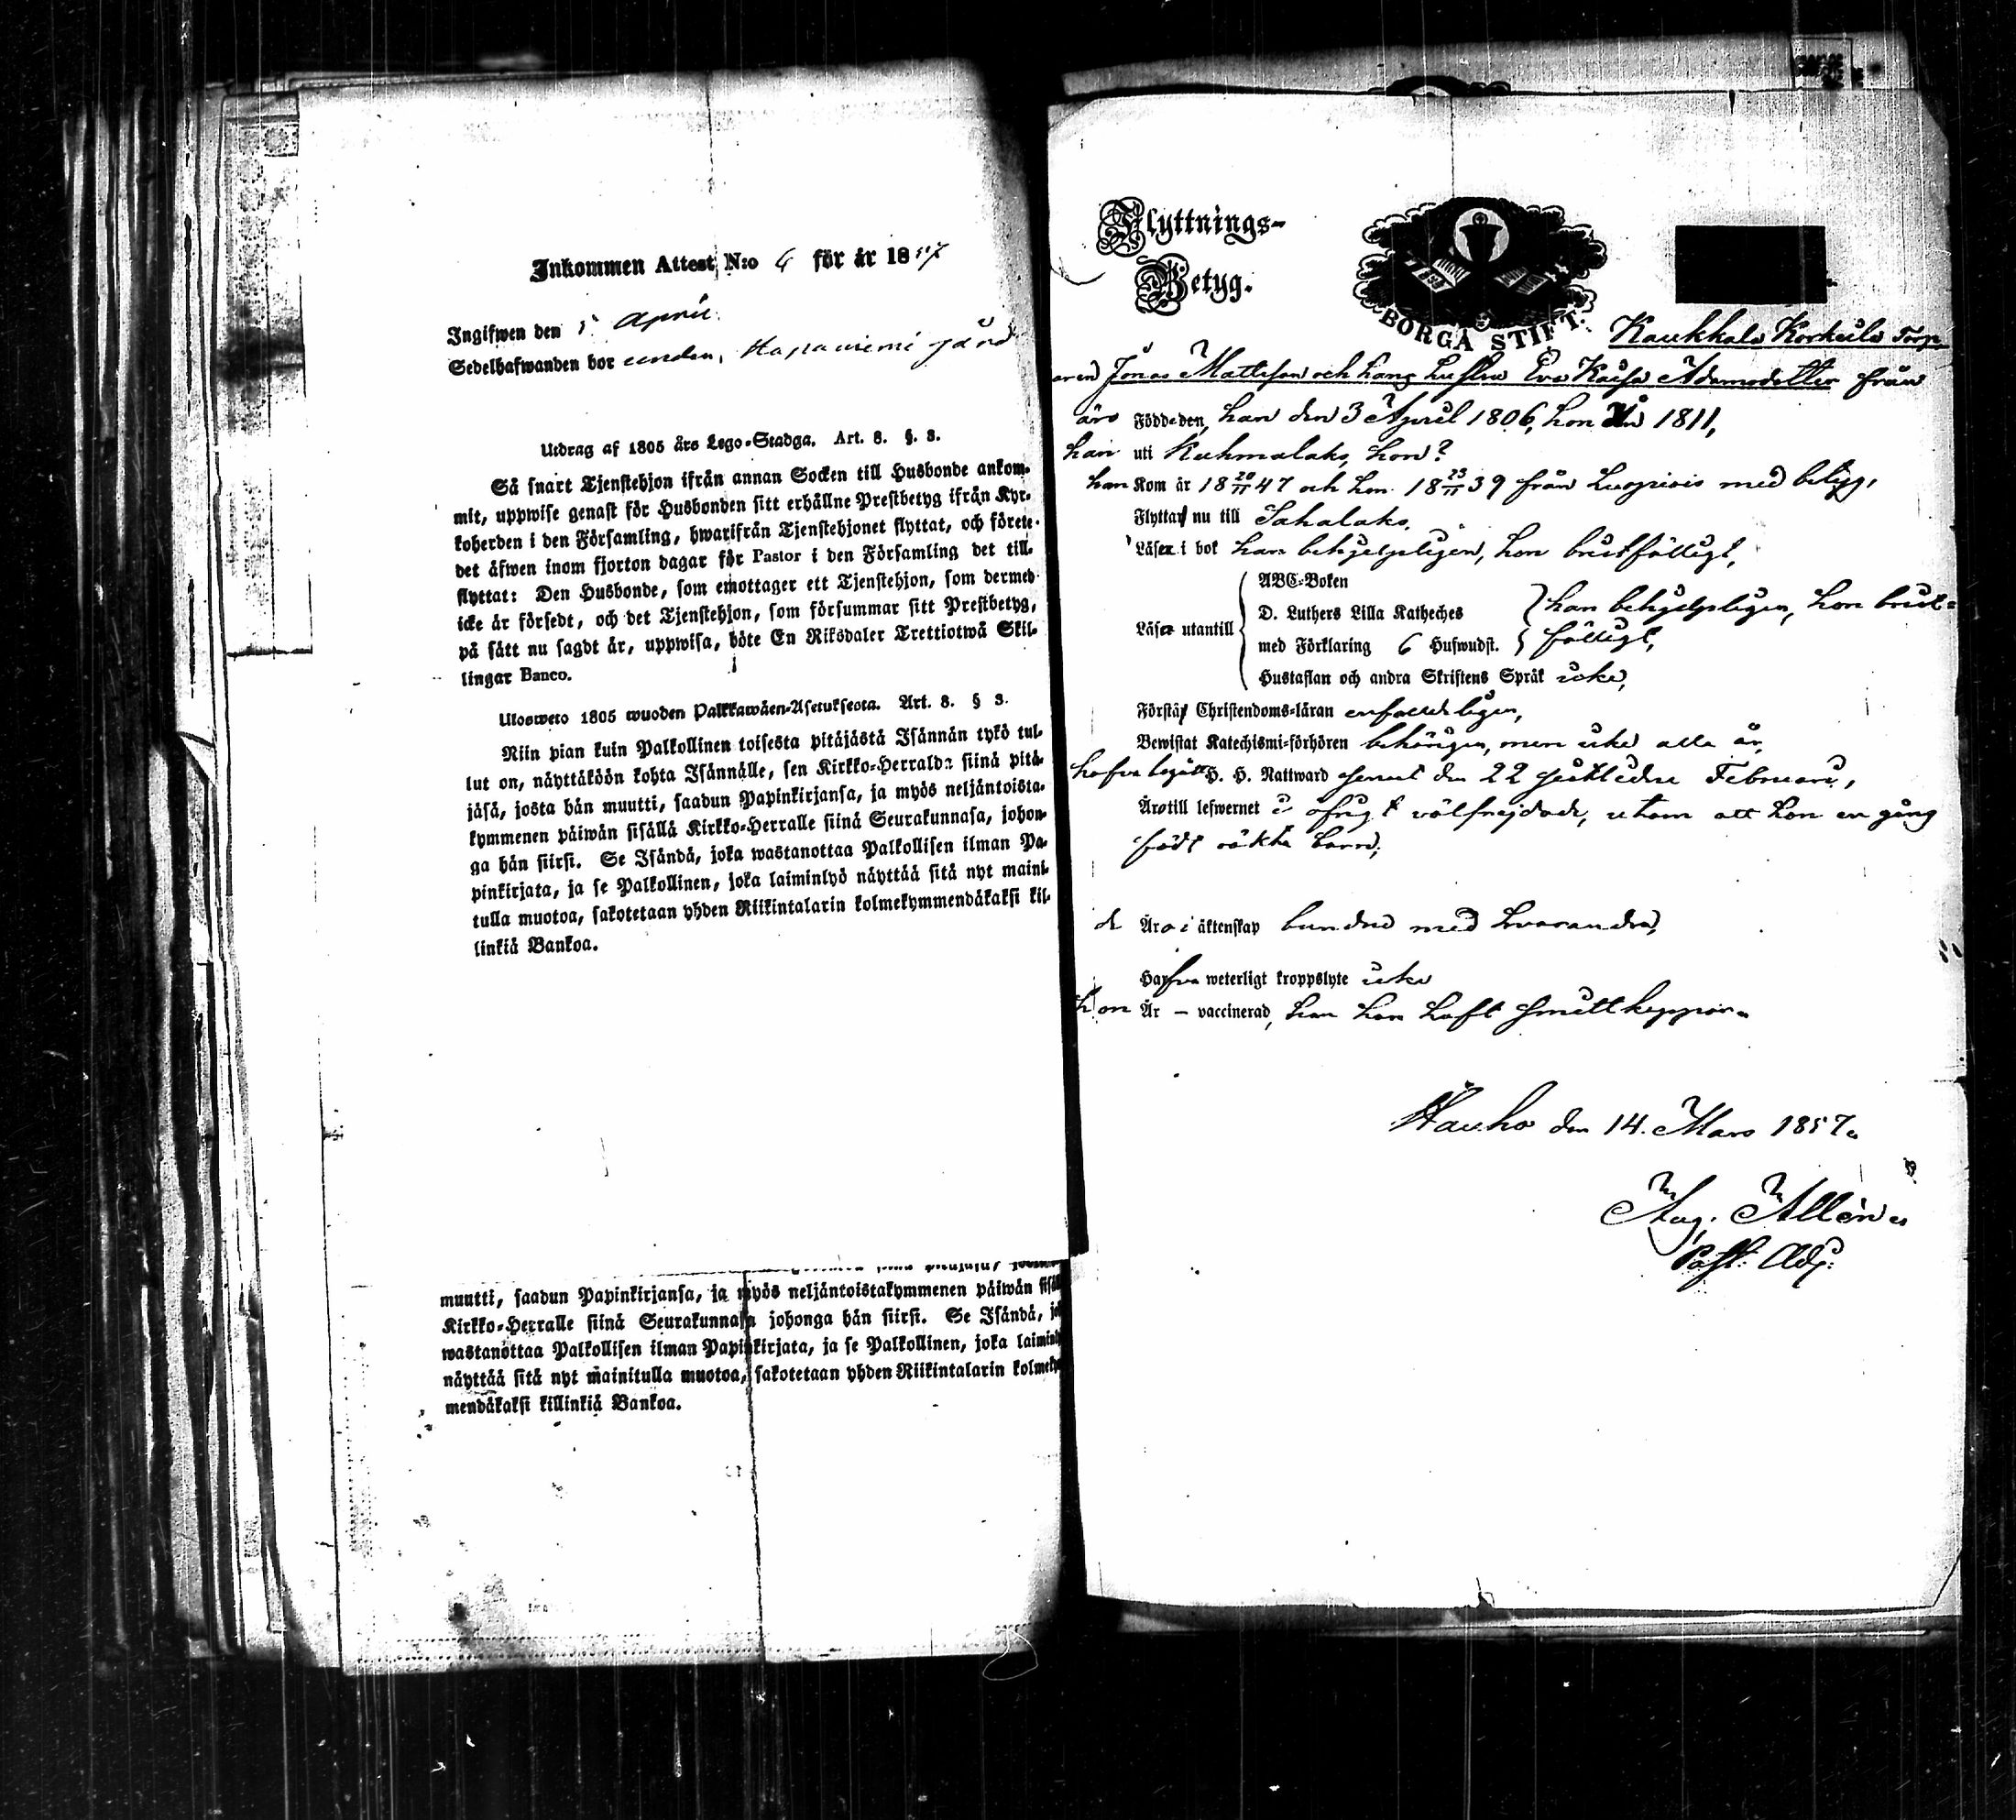 Inkommen Attest N:o 6 för år 1857
Ingifwen den 5 April.
Sedelhafwanden bor under Haapaniemi gård
Utdrag af 1805 års Lego-Stadga. Art. 8. §. 3.
Så snart Tjenstehjon ifrån annan Socken till Husbonde ankom-
mit, uppwise genast för Husbonden sitt erhållne Prestbetyg ifrån Kyr-
koherden i den Församling, hwarifrån Tjenstehjonet flyttat, och förete
det äfwen inom fjorton dagar för Pastor i den Församling det till-
flyttat: Den Husbonde, som emottager ett Tjenstehjon, som dermed
icke är försedt, och det Tjenstehjon, som försummar sitt Prestbetyg,
på sätt nu sagdt är, uppwisa, böte En Riksdaler Trettiotwå Skil-
lingar Banco.
Ulosweto 1805 wuoden Palkkawäen-Asetuksesta. Art. 8. § 3.
Niin pian kuin Palkollinen toisesta pitäjästä Isännän tykö tul-
lut on, näyttäköön kohta Isännälle, sen Kirkko-Herralda siinä pitä-
jäsä, josta hän muutti, saadun Papinkirjansa, ja myös neljäntoista-
kymmenen päiwän sisällä Kirkko-Herralle siinä Seurakunnasa, johon-
ga hän siirsi. Se Isändä, joka wastanottaa Palkollisen ilman Pa-
pinkirjata, ja se Palkollinen, joka laiminlyö näyttää sitä nyt maini-
tulla muotoa, sakotetaan yhden Riikintalarin kolmekymmendäkaksi kil-
linkiä Bankoa.
muutti, saadun Papinkirjansa, ja myös neljäntoistakymmenen päiwän sisäl
Kirkko-Herralle siinä Seurakunnasa johonga hän siirsi. Se Isändä, jo
wastanottaa Palkollisen ilman Papinkirjata, ja se Palkollinen, joka laiminl
näyttää sitä nyt mainitulla muotoa, sakotetaan yhden Riikintalarin kolmeky
mendäkaksi killinkiä Bankoa.
Flyttnings-
Betyg.
BORGÅ STIFT.
Kaukkala Korkeila Torp-
aren Jonas Mattsson och hans hustru Eva Kaisa Adamsdotter från
äro Född den, han den 3 April 1806, hon 1811,
han uti Kuhmalaks, hon?
han Kom år 18 20/11 47 och hon 18 23/11 39 från Luopiois med betyg,
Flyttar nu till Sahalaks.
Läser i bok han behjelpligen, hon bristfälligt,
Läser utantill
ABC-Boken
D. Luthers Lilla Kateches
med Förklaring 6 Hufwudst.
han behjelpligen, hon brist-
fälligt,
Hustaflan och andra Skriftens Språk icke,
Förstår Christendoms-läran enfaldeligen,
Bewistat Katechismi-förhören behörigen, men icke alla år,
hafva begått H. H. Nattward senast den 22 sistlidne Februari,
Äro till lefwernet i öfrigt välfrejdade, utom att hon en gång
födt oäkta barn,
de Äro i äktenskap bundne med hvarandra,
Hafva weterligt kroppslyte icke
hon Är – vaccinerad, han har haft smittkoppor.
Hauho den 14. Mars 1857.
Aug. Allén
Past: Adj: